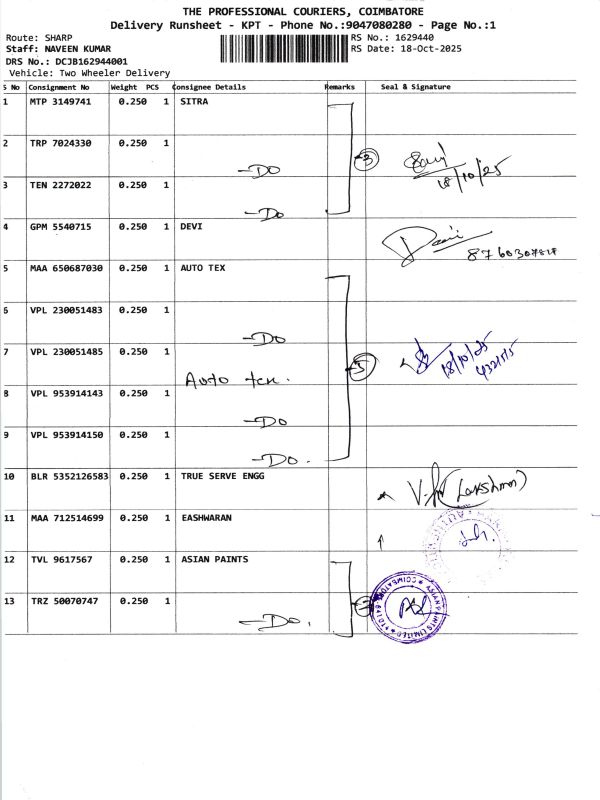 THE PROFESSIONAL COURIERS, COIMBATORE
Delivery Runsheet - KPT - Phone No.:9047080280 - Page No.:1
Route: SHARP RS No.: 1629440
Staff: NAVEEN KUMAR RS Date: 18-Oct-2025
DRS No.: DCJB162944001
Vehicle: Two Wheeler Delivery
S No Consignment No Weight PCS Consignee Details Remarks Seal & Signature
1 MTP 3149741 0.250 1 SITRA
2 TRP 7024330 0.250 1
-DO 3
18/10/25
3 TEN 2272022 0.250 1
-DO
4 GPM 5540715 0.250 1 DEVI
5 MAA 650687030 0.250 1 AUTO TEX
6 VPL 230051483 0.250 1
-DO
7 VPL 230051485 0.250 1
Auto tex. 5 18/10/25
8 VPL 953914143 0.250 1
-DO
9 VPL 953914150 0.250 1
-DO.
10 BLR 5352126583 0.250 1 TRUE SERVE ENGG
(Lakshman)
11 MAA 712514699 0.250 1 EASHWARAN
12 TVL 9617567 0.250 1 ASIAN PAINTS
13 TRZ 50070747 0.250 1
-DO. 2
ASIAN PAINTS LIMITED ★ COIMBATORE